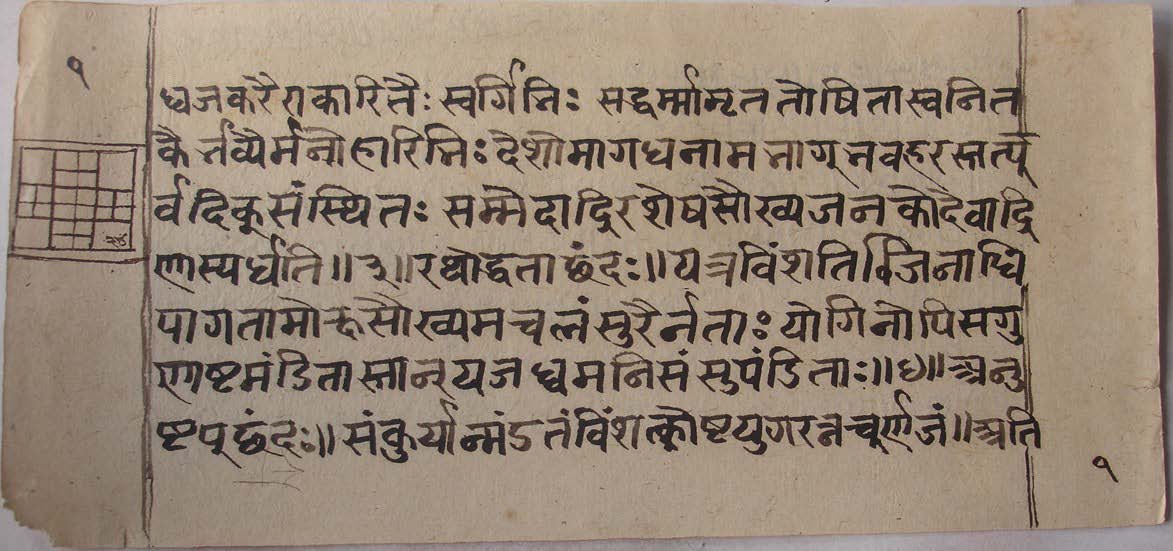 १
ध्वजकरैराकारितैः स्वर्गिभिः सद्धर्म्मामृततोषितास्वनित
कैर्भव्यैर्मनोहारिभिः देशोमागधनाम
र्वदिकुसंस्थितः सम्मेदाद्रिरशेषसौख्यजनकोदेवाद्रि
णास्यर्धाति॥३॥रथोद्धताछंदः॥यत्रविंशतिर्जिनाधि
पागतामोक्षसौख्यमचलंसुरैर्नताः योगिनोपिसगु
णाष्टमंडितास्तान्यजध्वमनिसंसुपंडिताः॥४॥अनु
ष्टप्छंदः॥संकुर्यान्मंडलंविंशत्कोष्टयुगरत्नचूर्णजं॥अति
२४
१